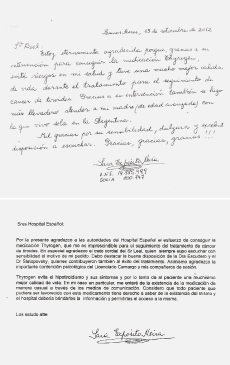 Buenos Aires, 19 de setiembre de 2012
Sr Leal:
Estoy eternamente agradecida porque, gracias a su
intervención para conseguir la medicación Thyrogen,
evité riesgos en mi salud y tuve una mucho mejor calidad
de vida durante el tratamiento para el seguimiento de
cáncer de tiroides. Gracias a su intervención también se hizo
más llevadero atender a mi madre (de edad avanzada) con
la que vivo sola en la Argentina.
Mil gracias por su sensibilidad, dulzura y
disposición a escuchar. Gracias, gracias, gracias!!!
Sres Hospital Español:
Por la presente agradezco a las autoridades del Hospital Español el esfuerzo de conseguir la
medicación Thyrogen, que me es imprescindible para el seguimiento del tratamiento de cáncer
de tiroides. En especial agradezco el trato cordial del Sr Leal, quien siempre supo escuchar con
sensibilidad el motivo de mi pedido. Debo destacar la buena disposición de la Dra Escudero y el
Dr Slatopovsky, quienes contribuyeron también al éxito del tratamiento. Asimismo agradezco la
importante contención psicológica del Licenciado Camargo a mis compañeros de sesión.
Thyrogen evita el hipotiroidismo y sus síntomas y por lo tanto da al paciente una muchísimo
mejor calidad de vida. En mi caso en particular, me enteré de la existencia de la medicación de
manera casual a través de los medios de comunicación. Considero que todo paciente que
pudiera ser favorecido con este medicamento tiene derecho a saber de la existencia del mismo y
el hospital debería brindarles la información y permitirles el acceso a la misma.
Los saluda atte